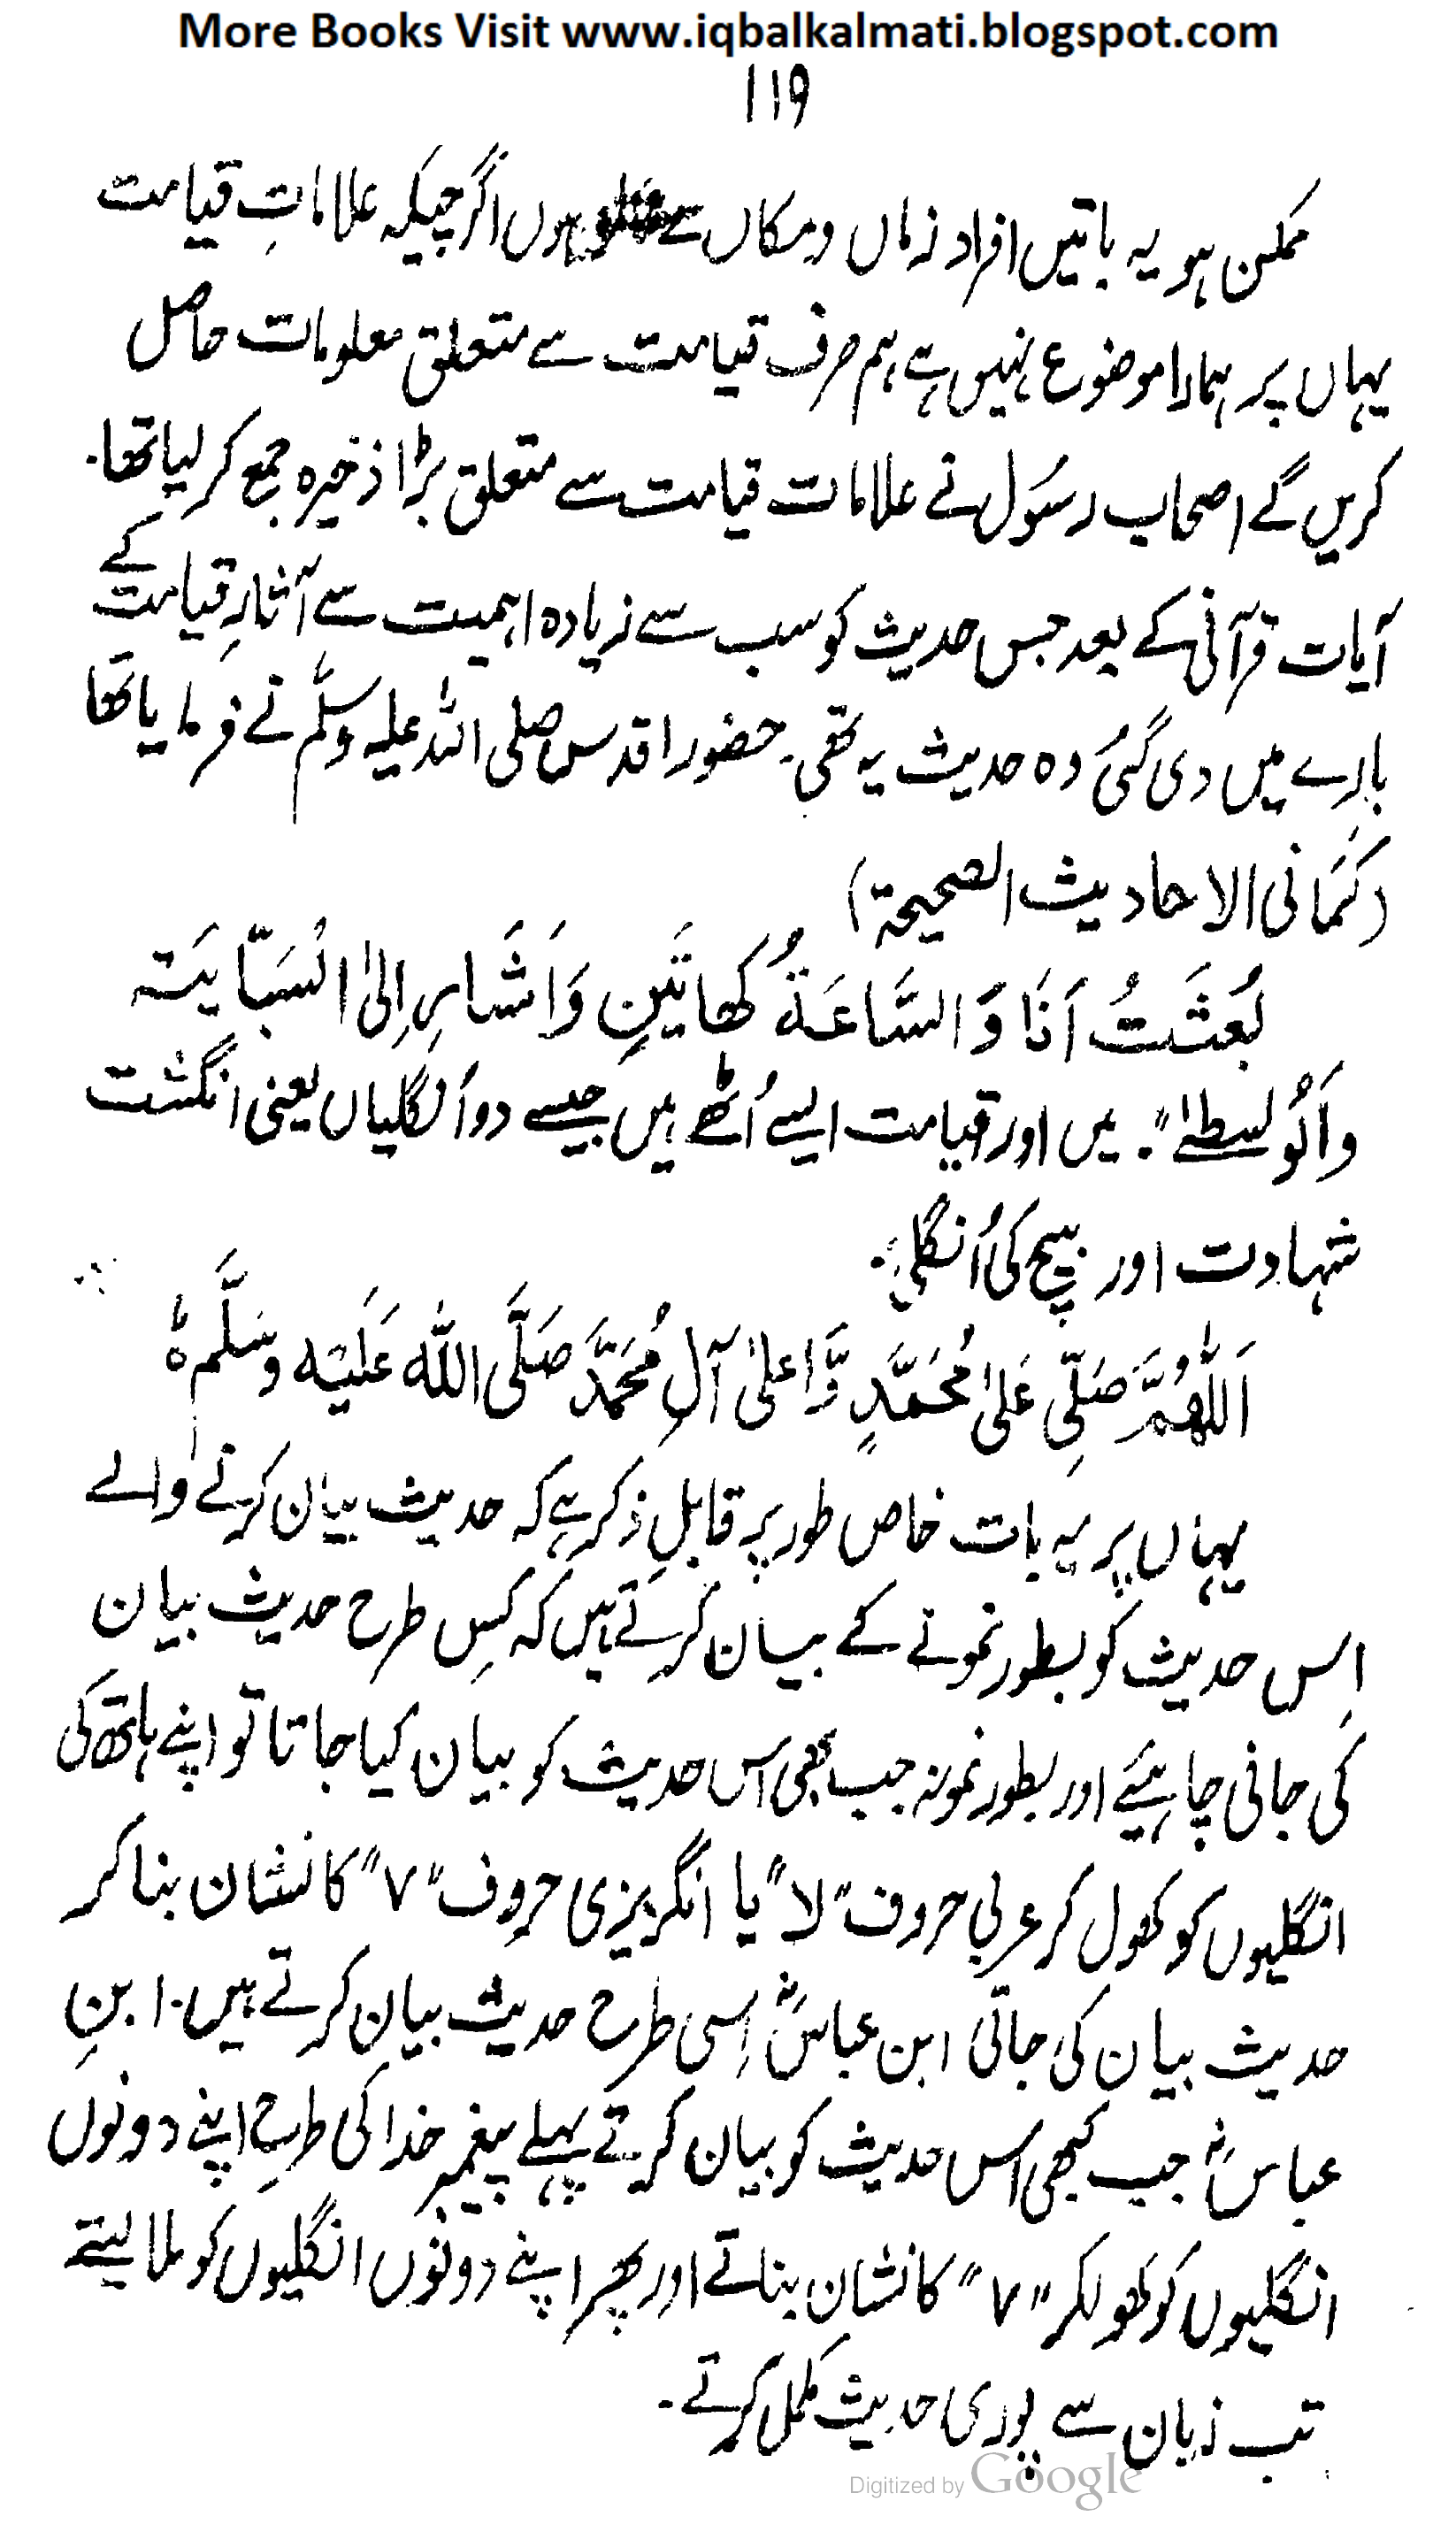 More Books Visit www.iqbalkalmati.blogspot.com
١١٩
ممکن ہو یہ باتیں افراد زماں و مکاں سے ہوں اگرچیکہ علاماتِ قیامت
یہاں پر ہمارا موضوع نہیں ہے ہم صرف قیامت سے متعلق معلومات حاصل
کریں گے اصحاب رسُول نے علامات قیامت سے متعلق بڑا ذخیرہ جمع کر لیا تھا۔
آیات قرآنی کے بعد جس حدیث کو سب سے زیادہ اہمیت سے آثارِ قیامت کے
بارے میں دی گئی وہ حدیث یہ تھی۔ حضور اقدس صلی اللہ علیہ وسلّم نے فرمایا تھا
(کَمَا فی الاحادیث الصحیحۃ)
بُعَثَتُ اَنَا وَ السَّاعَۃُ کَھاتَینِ وَاَشَارِ اِلیٰ السَبَّابَیَتہ
واَلُوسطیٰ"۔ میں اور قیامت ایسے اُٹھے ہیں جیسے دو اُنگلیاں یعنی انگشت
شہادت اور بیچ کی اُنگلی۔
اَللّٰھُمَّ صَلِّی عَلیٰ مُحَمَّدٍ وَّا علیٰ آلِ مُحَمَّدَ صَلَّی اللّٰہُ عَلَیْہ وسَلَّمْ ہ
یہاں پر یہ بات خاص طور پر قابلِ ذکر ہے کہ حدیث بیان کرنے والے
اِس حدیث کو بطور نمونے کے بیان کرتے ہیں کہ کِس طرح حدیث بیان
کی جانی چاہیئے اور بطور نمونہ جب بھی اس حدیث کو بیان کیا جاتا تو اپنے ہاتھ کی
انگلیوں کو کھول کر عربی حروف "لا" یا انگریزی حروف "٧" کا نشان بنا کر
حدیث بیان کی جاتی ابن عباسؓ اِسی طرح حدیث بیان کرتے ہیں۔ ابنِ
عباسؓ جب کبھی اس حدیث کو بیان کرتے پہلے پیغمبر خدا کی طرح اپنے دونوں
انگلیوں کو کھولکر "٧" کا نشان بناتے اور پھر اپنے دونوں انگلیوں کو ملا لیتے
تب زبان سے پوری حدیث مکمل کرتے۔
Digitized by Google